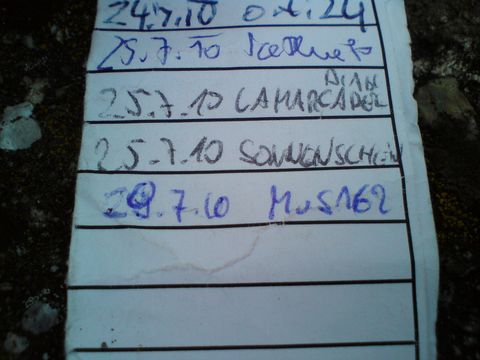 24.7.10
25.7.10
DIAN
25.7.10 LAMARCADER
25.7.10 SONNENSCHEIN
29.7.10 MUS162